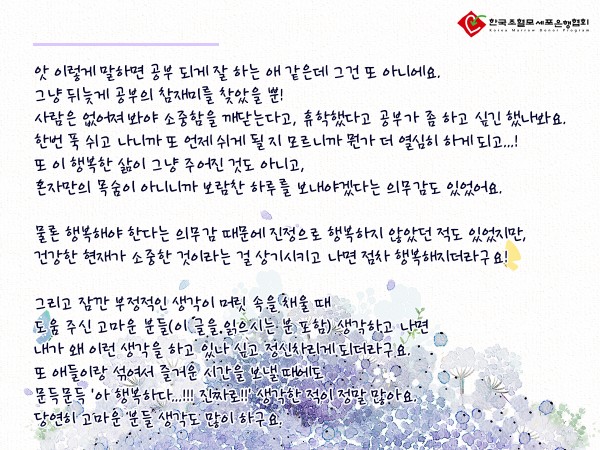 한국조혈모세포은행협회
Korea Marrow Donor Program
앗 이렇게 말하면 공부 되게 잘 하는 애 같은데 그건 또 아니에요.
그냥 뒤늦게 공부의 참재미를 찾았을 뿐!
사람은 없어져 봐야 소중함을 깨닫는다고, 휴학했다고 공부가 좀 하고 싶긴 했나봐요.
한번 푹 쉬고 나니까 또 언제 쉬게 될 지 모르니까 뭔가 더 열심히 하게 되고...!
또 이 행복한 삶이 그냥 주어진 것도 아니고,
혼자만의 목숨이 아니니까 보람찬 하루를 보내야겠다는 의무감도 있었어요.
물론 행복해야 한다는 의무감 때문에 진정으로 행복하지 않았던 적도 있었지만,
건강한 현재가 소중한 것이라는 걸 상기시키고 나면 점차 행복해지더라구요!
그리고 잠깐 부정적인 생각이 머릿 속을 채울 때
도움 주신 고마운 분들(이 글을 읽으시는 분 포함) 생각하고 나면
내가 왜 이런 생각을 하고 있나 싶고 정신차리게 되더라구요.
또 애들이랑 섞여서 즐거운 시간을 보낼 때에도
문득문득 '아 행복하다...!!! 진짜로!!' 생각한 적이 정말 많아요.
당연히 고마운 '분들' 생각도 많이 하구요.